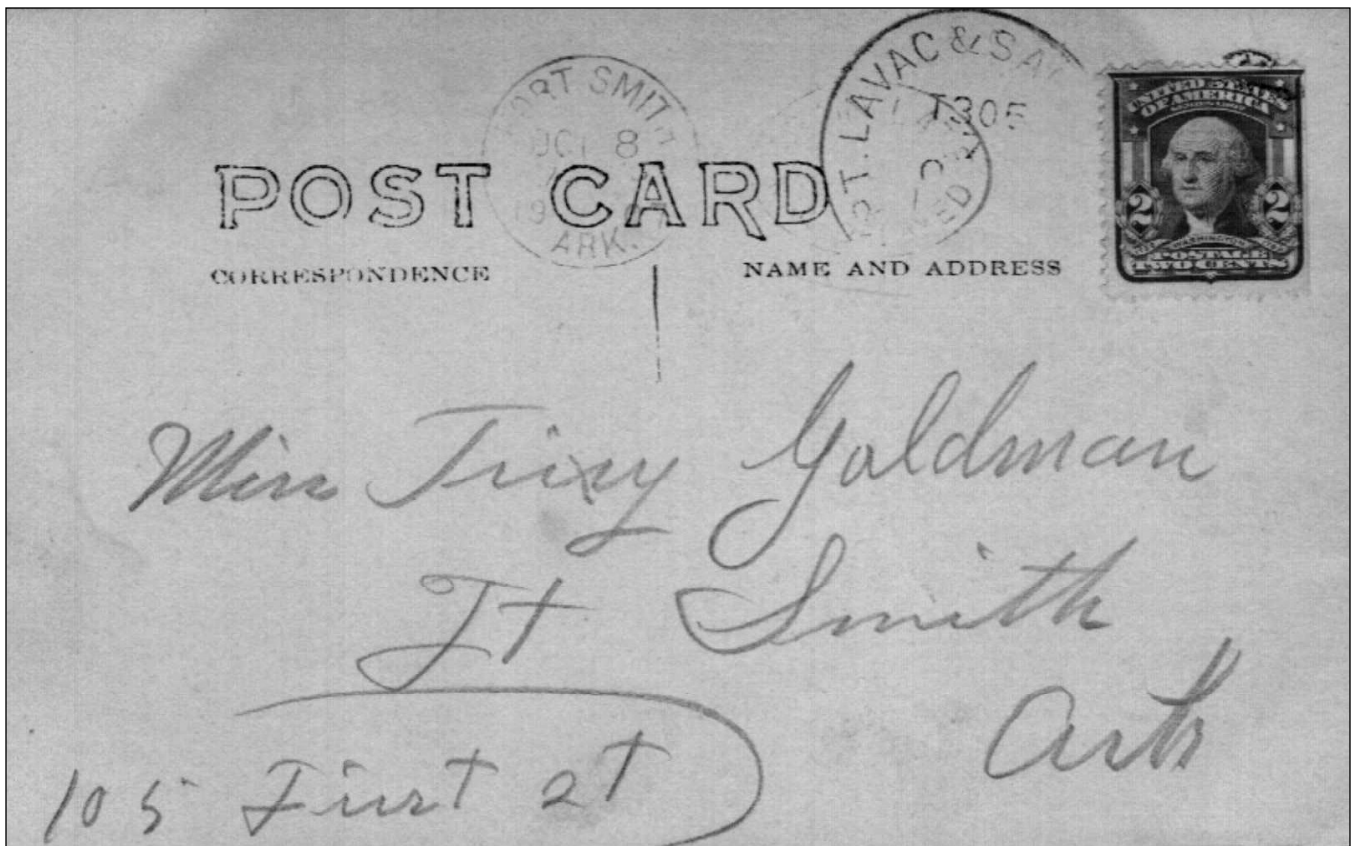 FORT SMITH
OCT 8
ARK.
PT. LAVAC & S A
T305
UNITED STATES
OF AMERICA
2 2
WASHINGTON
POSTAGE
TWO CENTS
POST CARD
CORRESPONDENCE
NAME AND ADDRESS
Miss Trixy Goldman
Ft Smith
Ark
105 First St